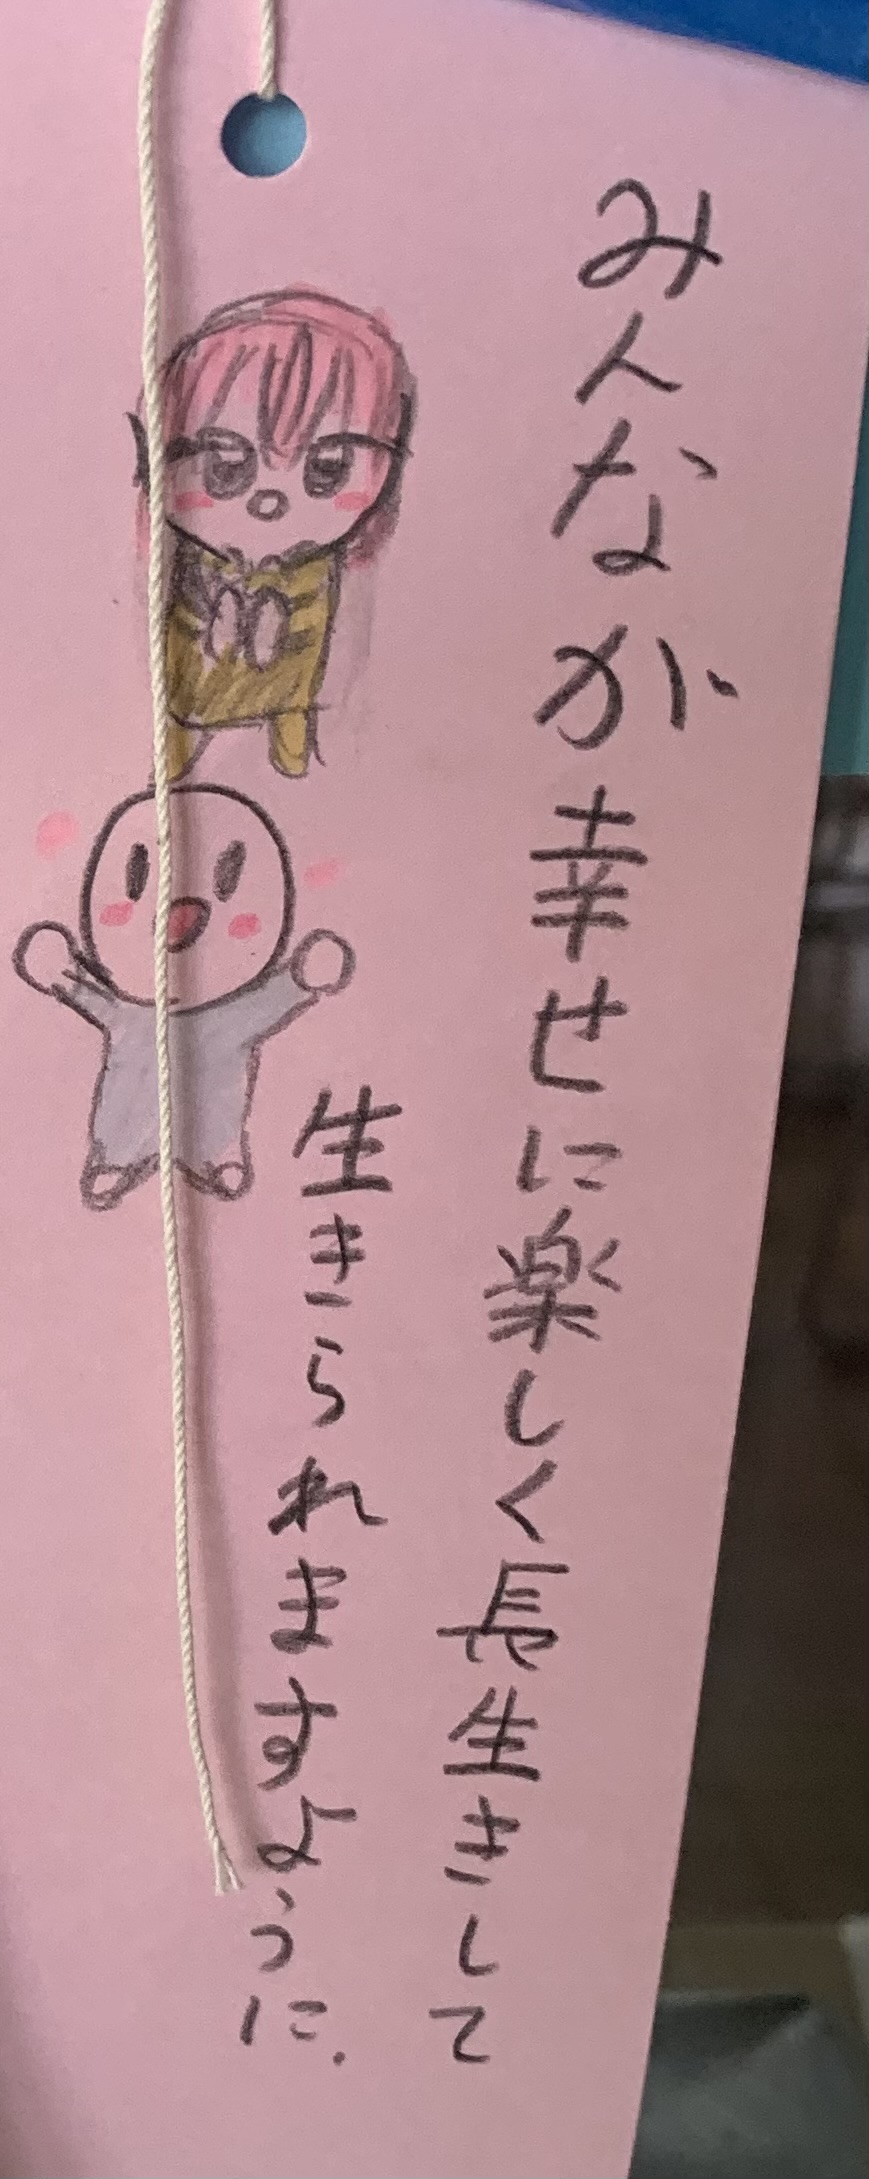 みんなが幸せに楽しく長生きして
生きられますように.